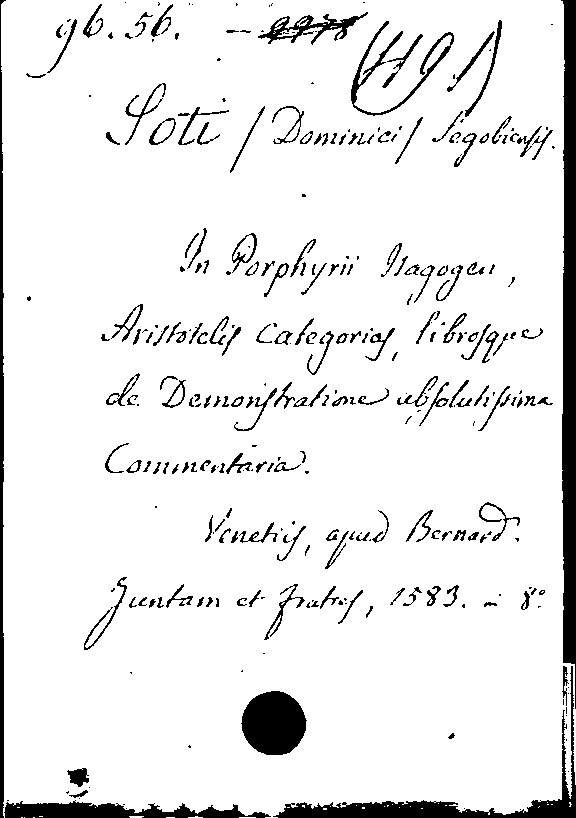 96. 56. – 9978 (H91)
Soti / Dominici / Segobiensis.
In Porphyrii Isagogen,
Aristotelis Categorias, librosque
de Demonstratione absolutissima
Commentaria.
Venetiis, apud Bernard.
Juntam et fratres, 1583. in 8°